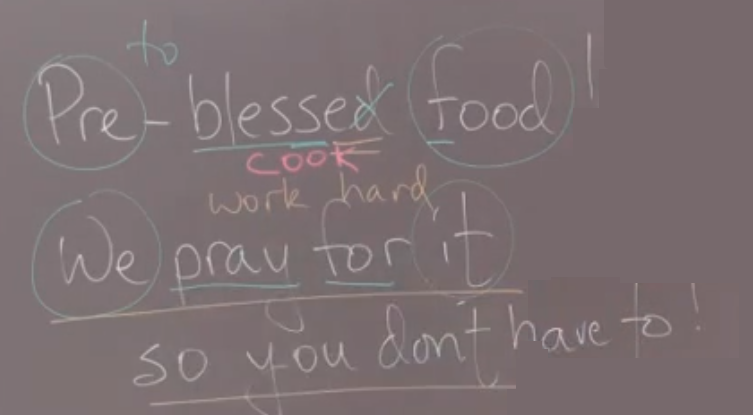 to
Pre-blessed food!
cook
work hard
We pray for it
so you don't have to!